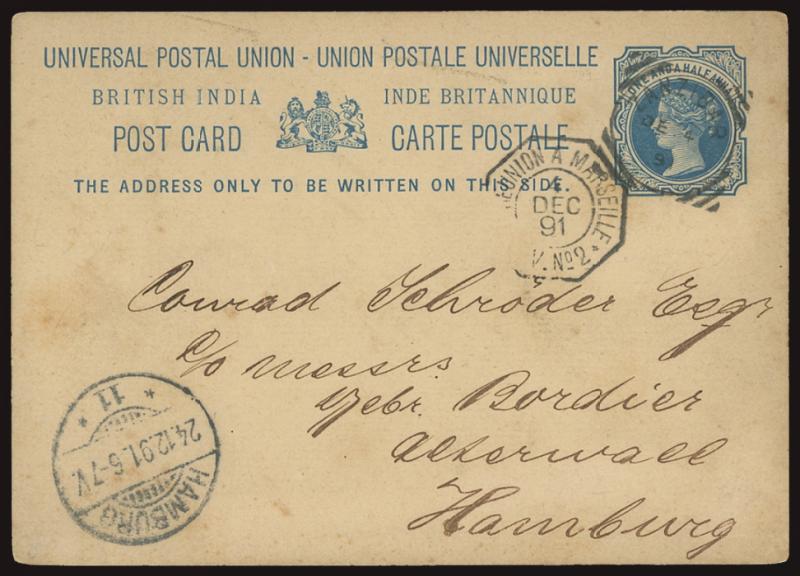 UNIVERSAL POSTAL UNION - UNION POSTALE UNIVERSELLE
BRITISH INDIA INDE BRITANNIQUE
POST CARD CARTE POSTALE
THE ADDRESS ONLY TO BE WRITTEN ON THIS SIDE.
ONE AND A HALF ANNA
ZANZIBAR
DE 4
9
REUNION A MARSEILLE
4
DEC
91
V. Nº 2 *
Conrad Schröder Esqr
c/o Messrs
Gebr. Bordier
Alterwall
Hamburg
HAMBURG
24.12.91. 6-7 V.
* 11 *